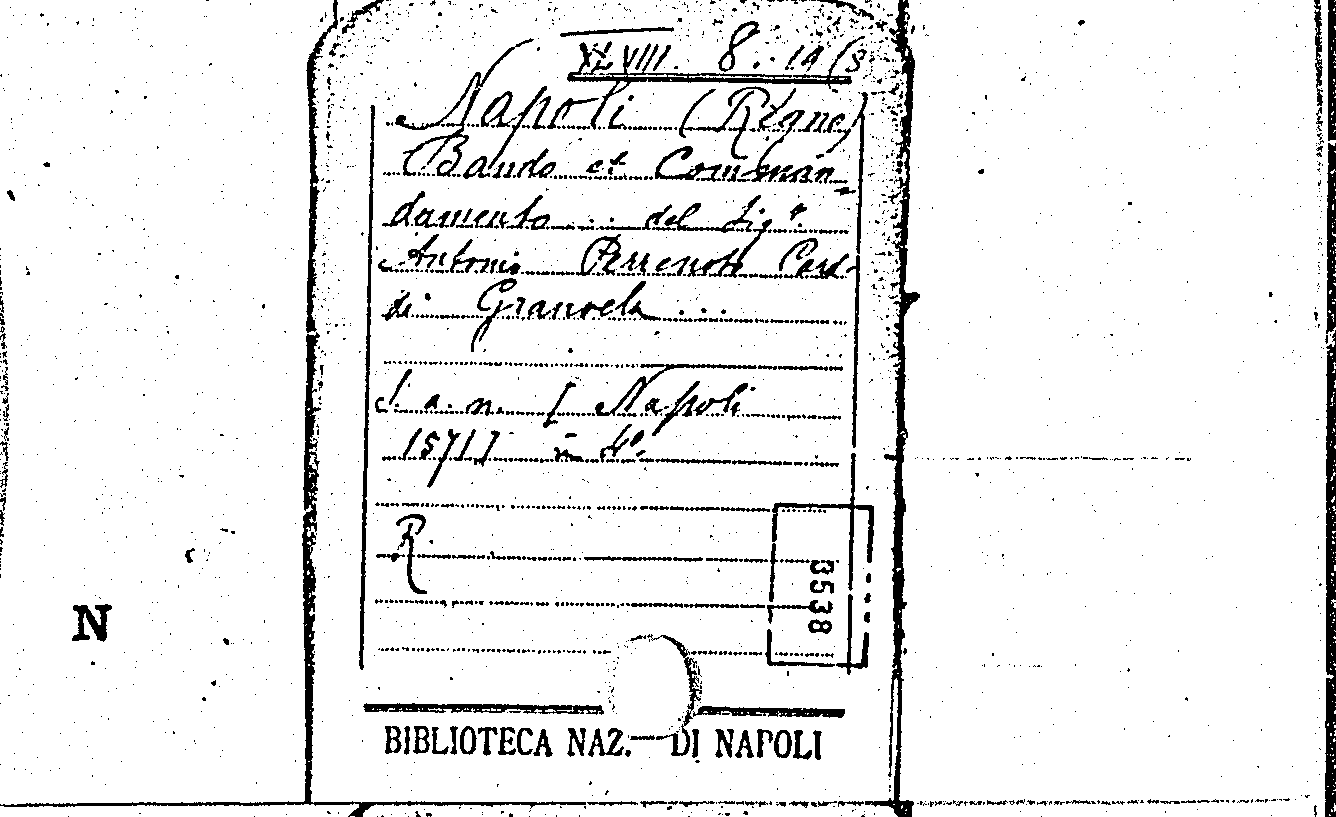 XLVIII. 8. 19 (3
Napoli (Regno)
Bando et Comman=
damento ... del Sigr.
Antonio Perrenoto Card.
di Granvela ...
S. a. n. [Napoli
1571] in 4º.
R.
3538
N
BIBLIOTECA NAZ. DI NAPOLI